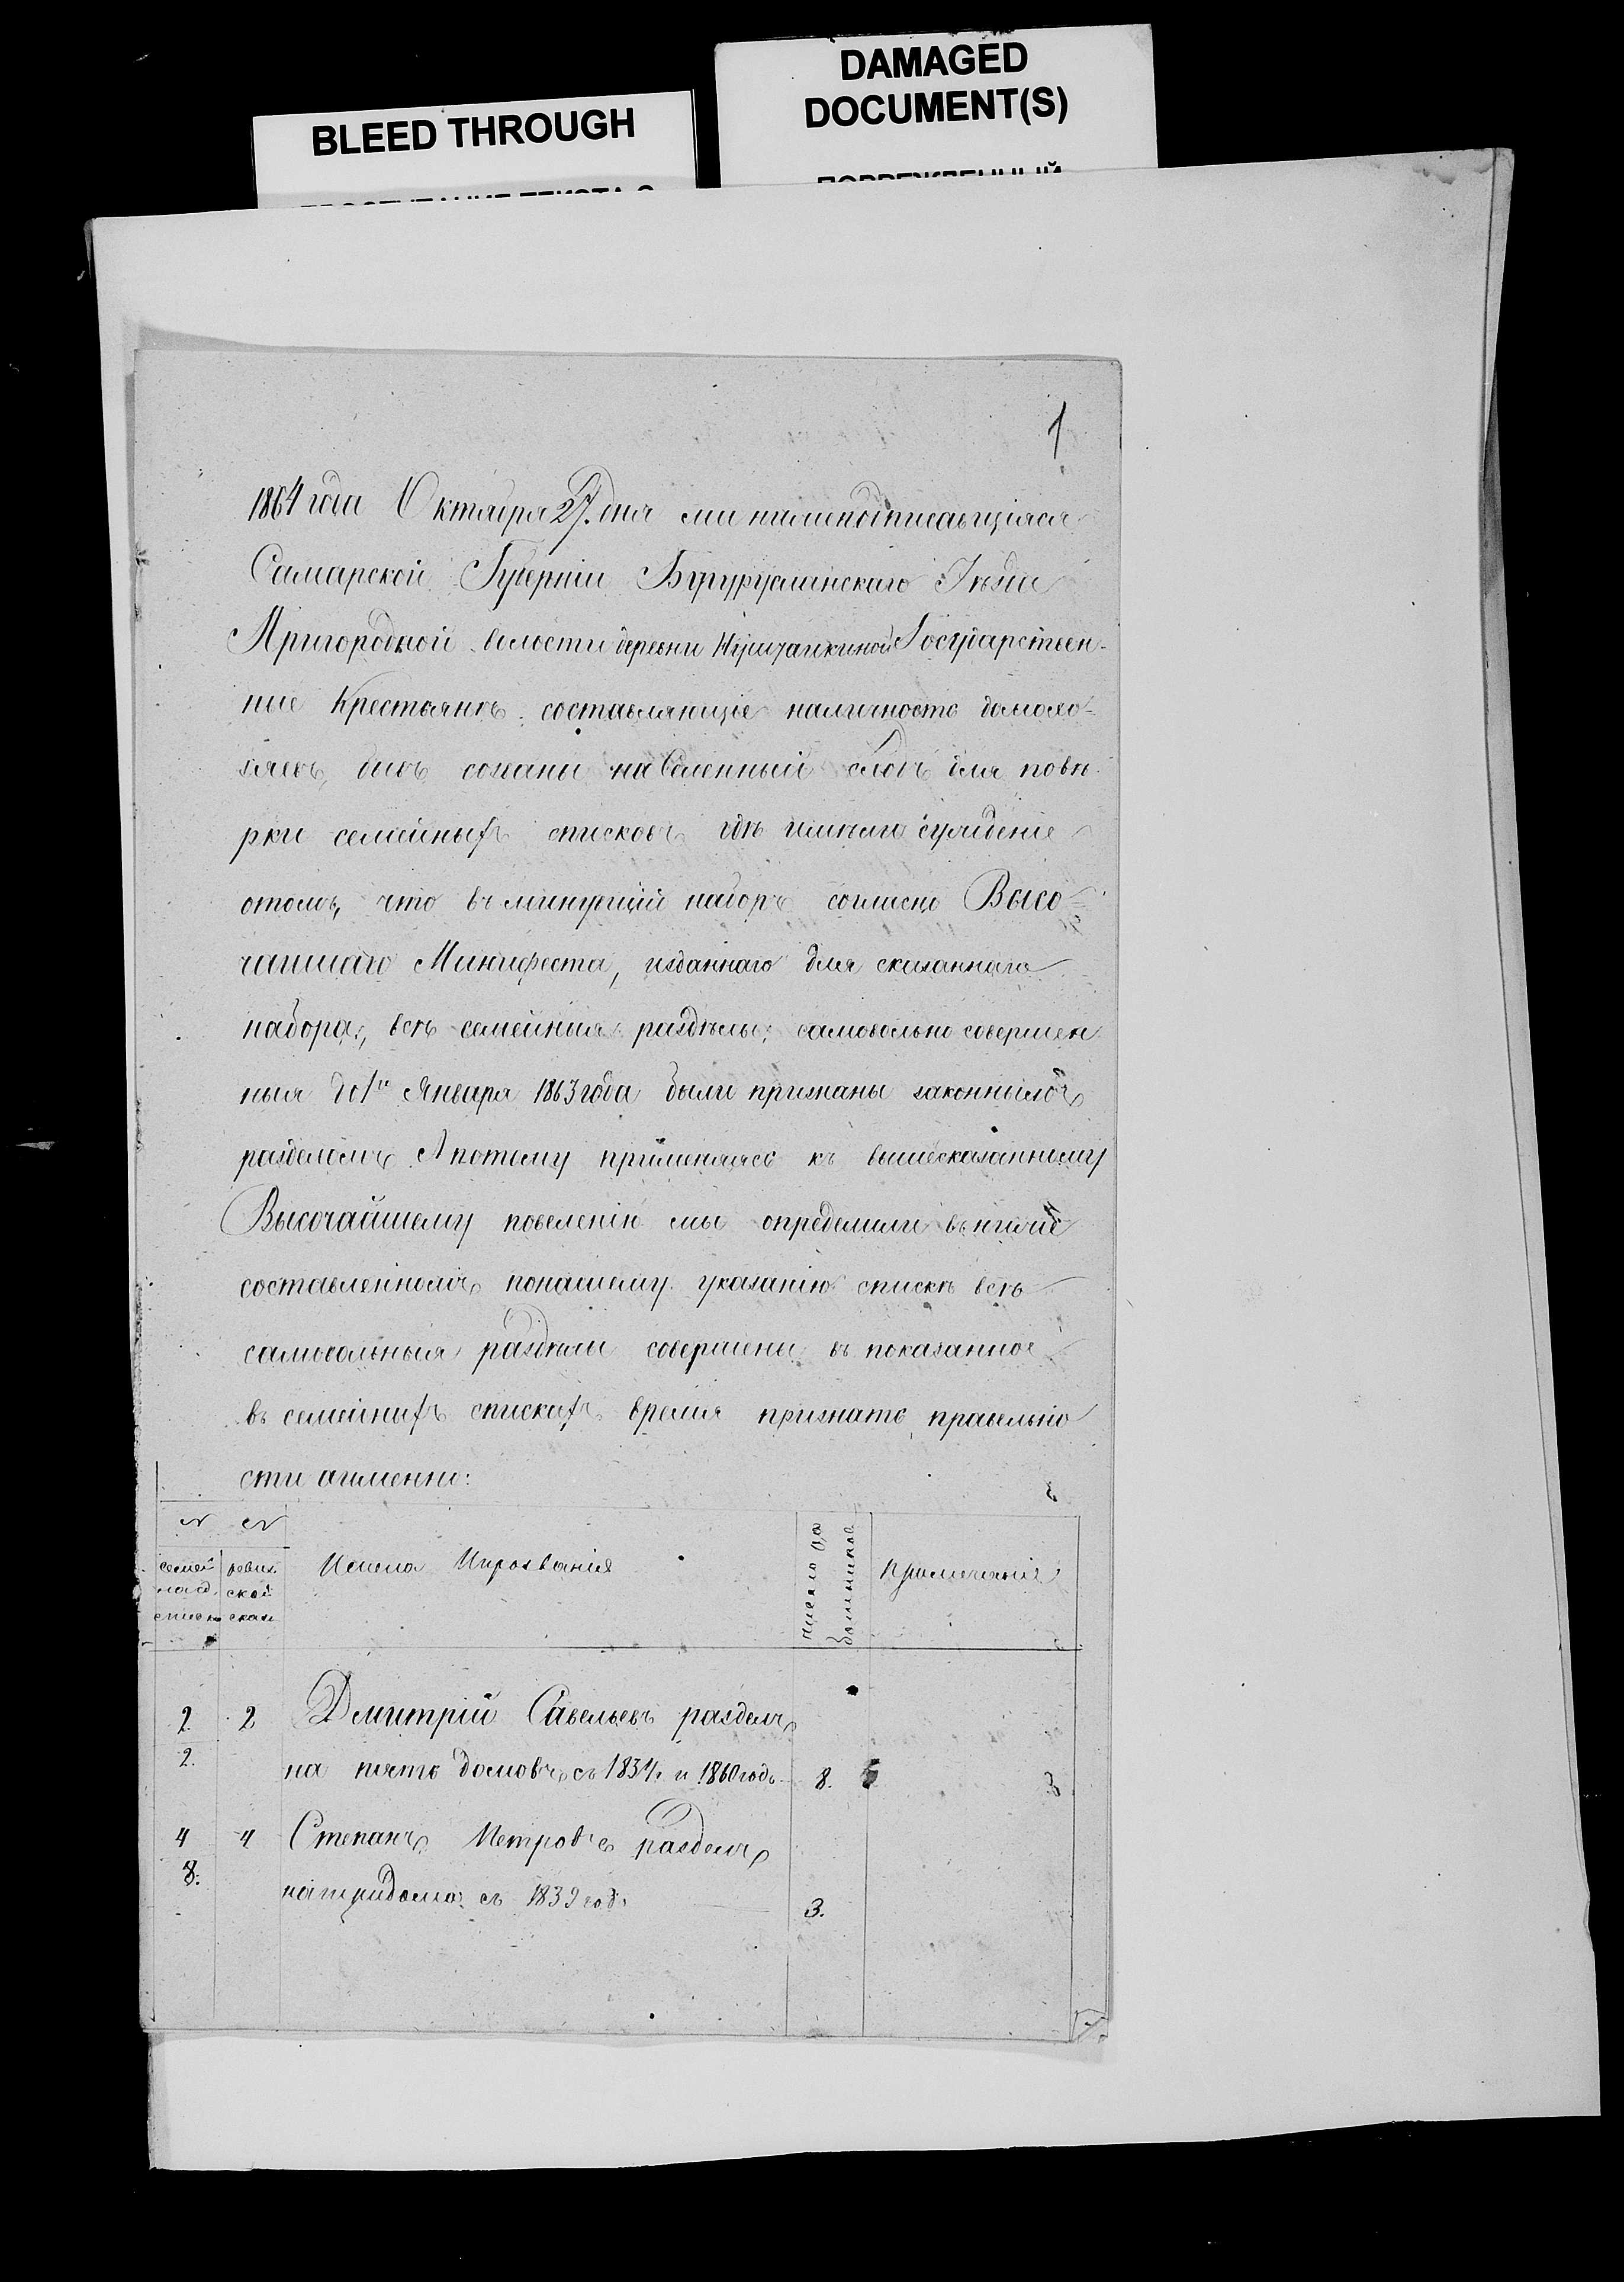 BLEED THROUGH
DAMAGED
DOCUMENT(S)
ПОВРЕЖДЕННЫЙ
1
1864 года Октября 27. дня мы нижеподписавшіяся
Самарской Губерніи Бугурусланскаго Уѣзда
Пригородной волости деревни Государствен-
ные Крестьянъ составляющіе наличность домохо-
зяевъ, бывъ созваны на Волостный сходъ для повѣ
рки семейныхъ списковъ гдѣ имѣли сужденіе
отомъ, что въ минущій наборъ согласно Высо-
чайшаго Манифеста, изданнаго для сказаннаго
набора, всѣ семейныя раздѣлы, самовольно совершен
ныя до 1го Января 1863 года были признаны законнымъ
разделомъ А потому применяясь къ вышесказанному
Высочайшему повеленію мы определили въ ниже
составленномъ понашему указанію спискѣ всѣ
самовольныя раздѣлы совершены въ показанное
въ семейныхъ спискахъ время признать правильно
сти аименно:
№ №
семей ревиз.
наго ской
списк сказ
Имена Ипрозванія
число ра
ботниковъ
Примечанія
2 2 Дмитрій Савельевъ разделъ
2. на пять домовъ съ 1834. и 1860 годъ 8.
4 4 Степанъ Петровъ разделъ
8. натридома съ 1839 год. 3.